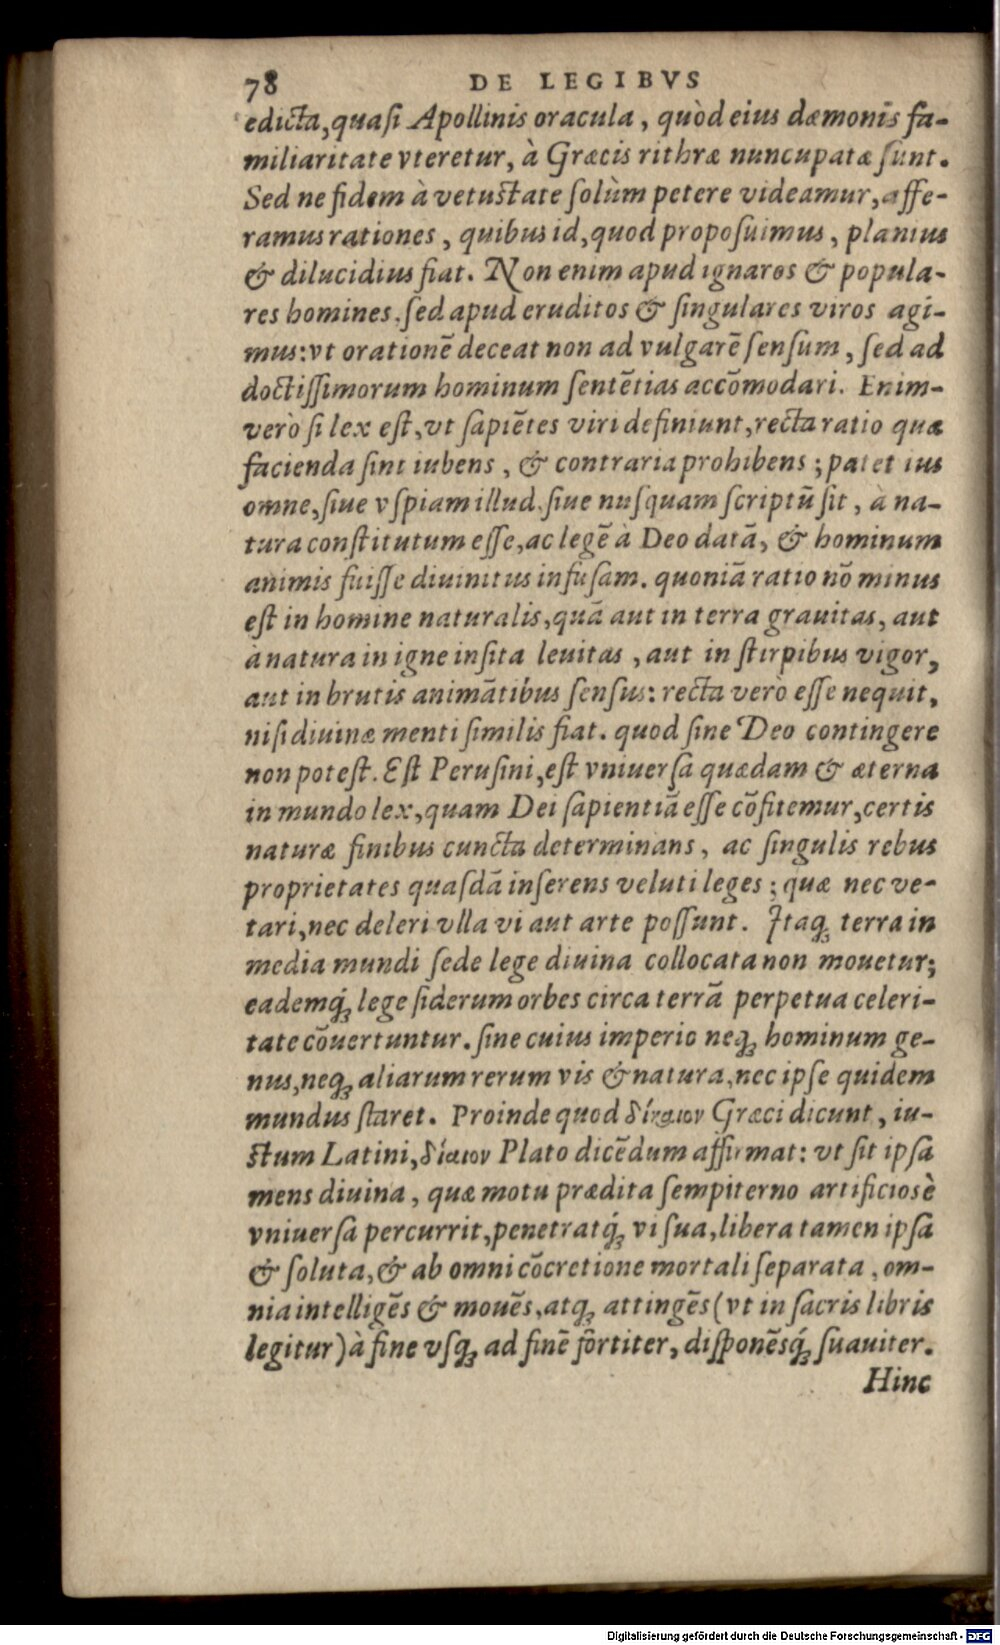 78 DE LEGIBVS
edicta, quasi Apollinis oracula, quòd eius dæmonis fa-
miliaritate vteretur, à Græcis rithræ nuncupatæ sunt.
Sed ne fidem à vetustate solùm petere videamur, affe-
ramus rationes, quibus id, quod proposuimus, planius
& dilucidius fiat. Non enim apud ignaros & popula-
res homines, sed apud eruditos & singulares viros agi-
mus: vt orationẽ deceat non ad vulgarẽ sensum, sed ad
doctissimorum hominum sentẽtias accõmodari. Enim-
verò si lex est, vt sapiẽtes viri definiunt, recta ratio quæ
facienda sint iubens, & contraria prohibens; patet ius
omne, siue vspiam illud, siue nusquam scriptũ sit, à na-
tura constitutum esse, ac legẽ à Deo datã, & hominum
animis fuisse diuinitus infusam. quoniã ratio nõ minus
est in homine naturalis, quã aut in terra grauitas, aut
à natura in igne insita leuitas, aut in stirpibus vigor,
aut in brutis animãtibus sensus: recta verò esse nequit,
nisi diuinæ menti similis fiat. quod sine Deo contingere
non potest. Est Perusini, est vniuersa quædam & æterna
in mundo lex, quam Dei sapientiã esse cõfitemur, certis
naturæ finibus cuncta determinans, ac singulis rebus
proprietates quasdã inserens veluti leges; quæ nec ve-
tari, nec deleri vlla vi aut arte possunt. Itaq; terra in
media mundi sede lege diuina collocata non mouetur;
eademq́; lege siderum orbes circa terrã perpetua celeri-
tate cõuertuntur. sine cuius imperio neq; hominum ge-
nus, neq; aliarum rerum vis & natura, nec ipse quidem
mundus staret. Proinde quod δίκαιον Græci dicunt, iu-
stum Latini, δίαιον Plato dicẽdum affirmat: vt sit ipsa
mens diuina, quæ motu prædita sempiterno artificiosè
vniuersa percurrit, penetratq́; vi sua, libera tamen ipsa
& soluta, & ab omni cõcretione mortali separata, om-
nia intelligẽs & mouẽs, atq; attingẽs (vt in sacris libris
legitur) à fine vsq; ad finẽ fortiter, disponẽsq́; suauiter.
Hinc
Digitalisierung gefördert durch die Deutsche Forschungsgemeinschaft - DFG